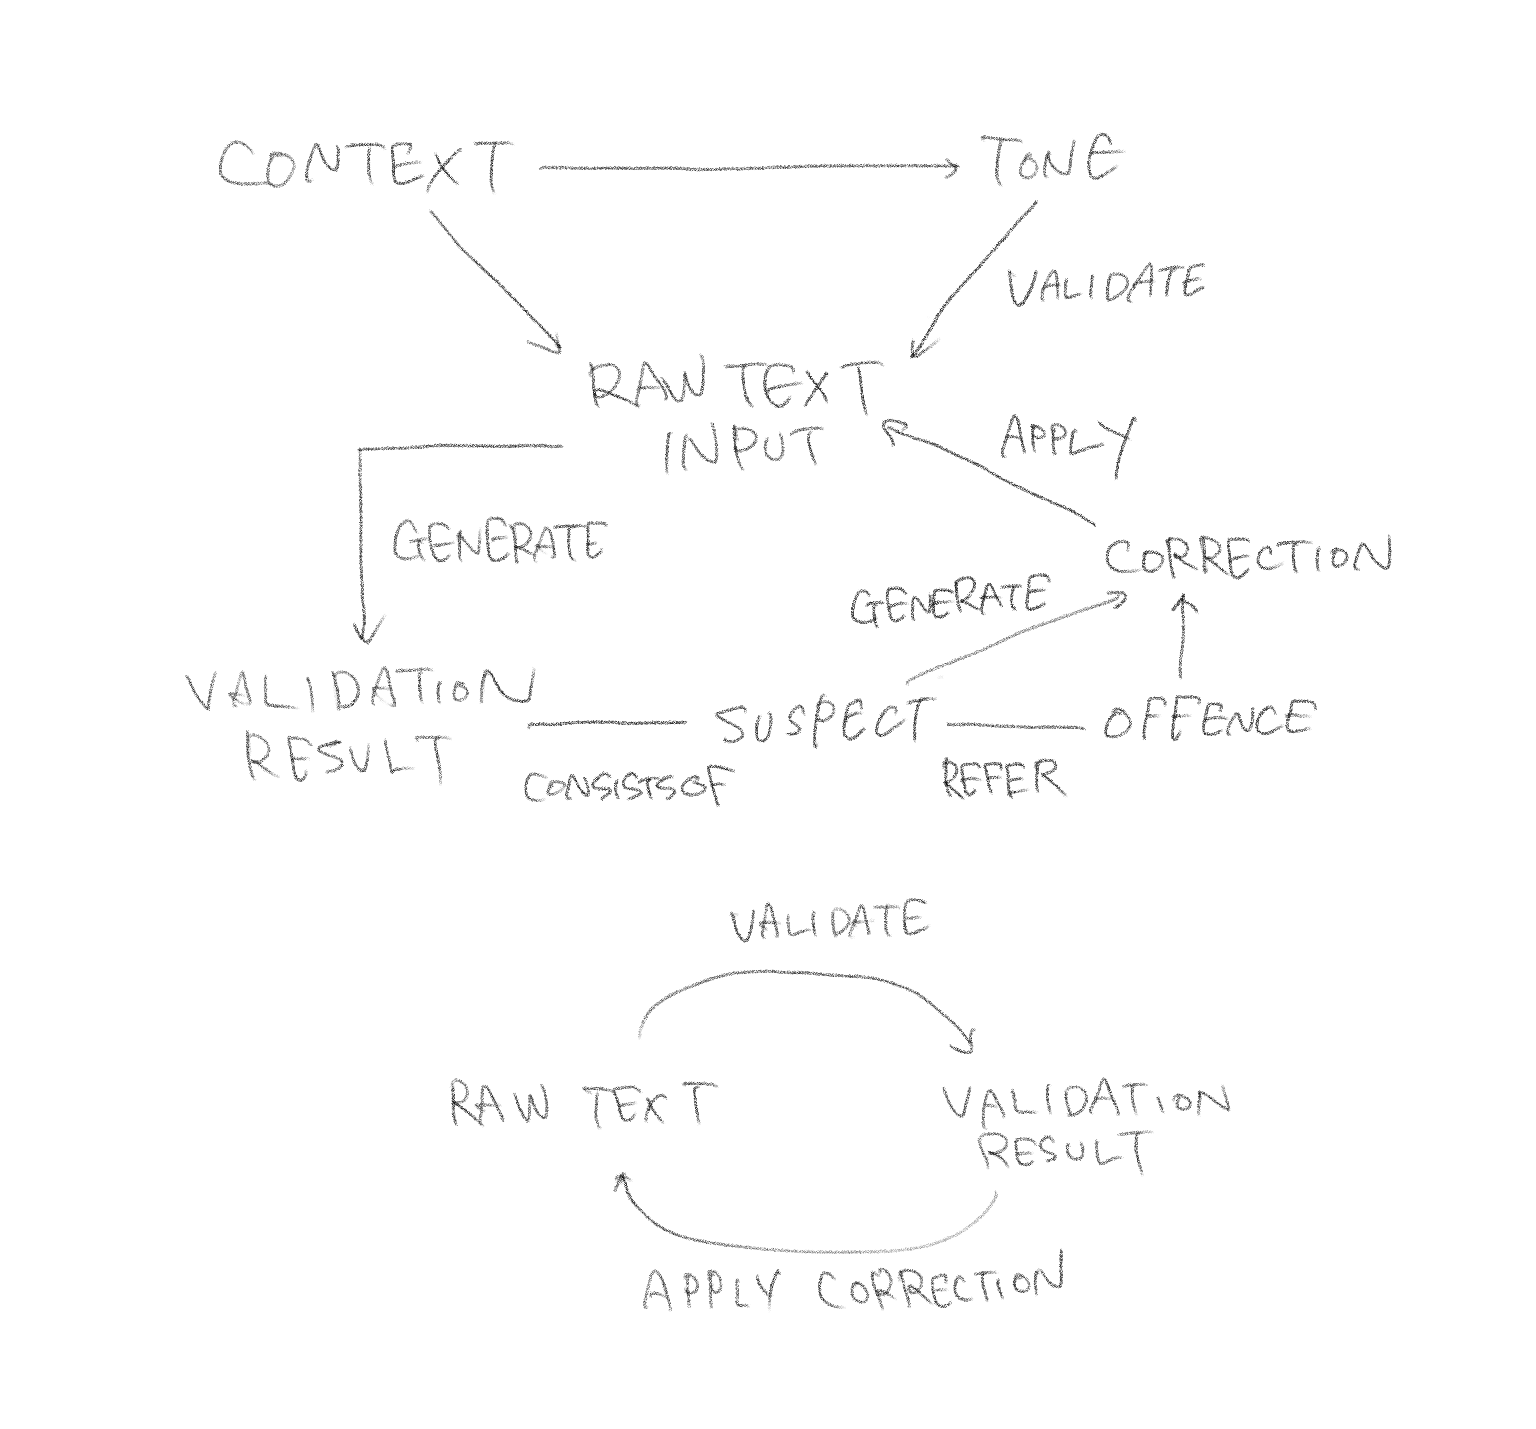 CONTEXT
TONE
VALIDATE
RAW TEXT
INPUT
APPLY
GENERATE
CORRECTION
GENERATE
VALIDATION
RESULT
SUSPECT
OFFENCE
CONSISTS OF
REFER
VALIDATE
RAW TEXT
VALIDATION
RESULT
APPLY CORRECTION